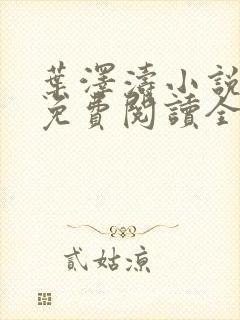 葉澤濤小說
免費閱讀全
貳姑凉